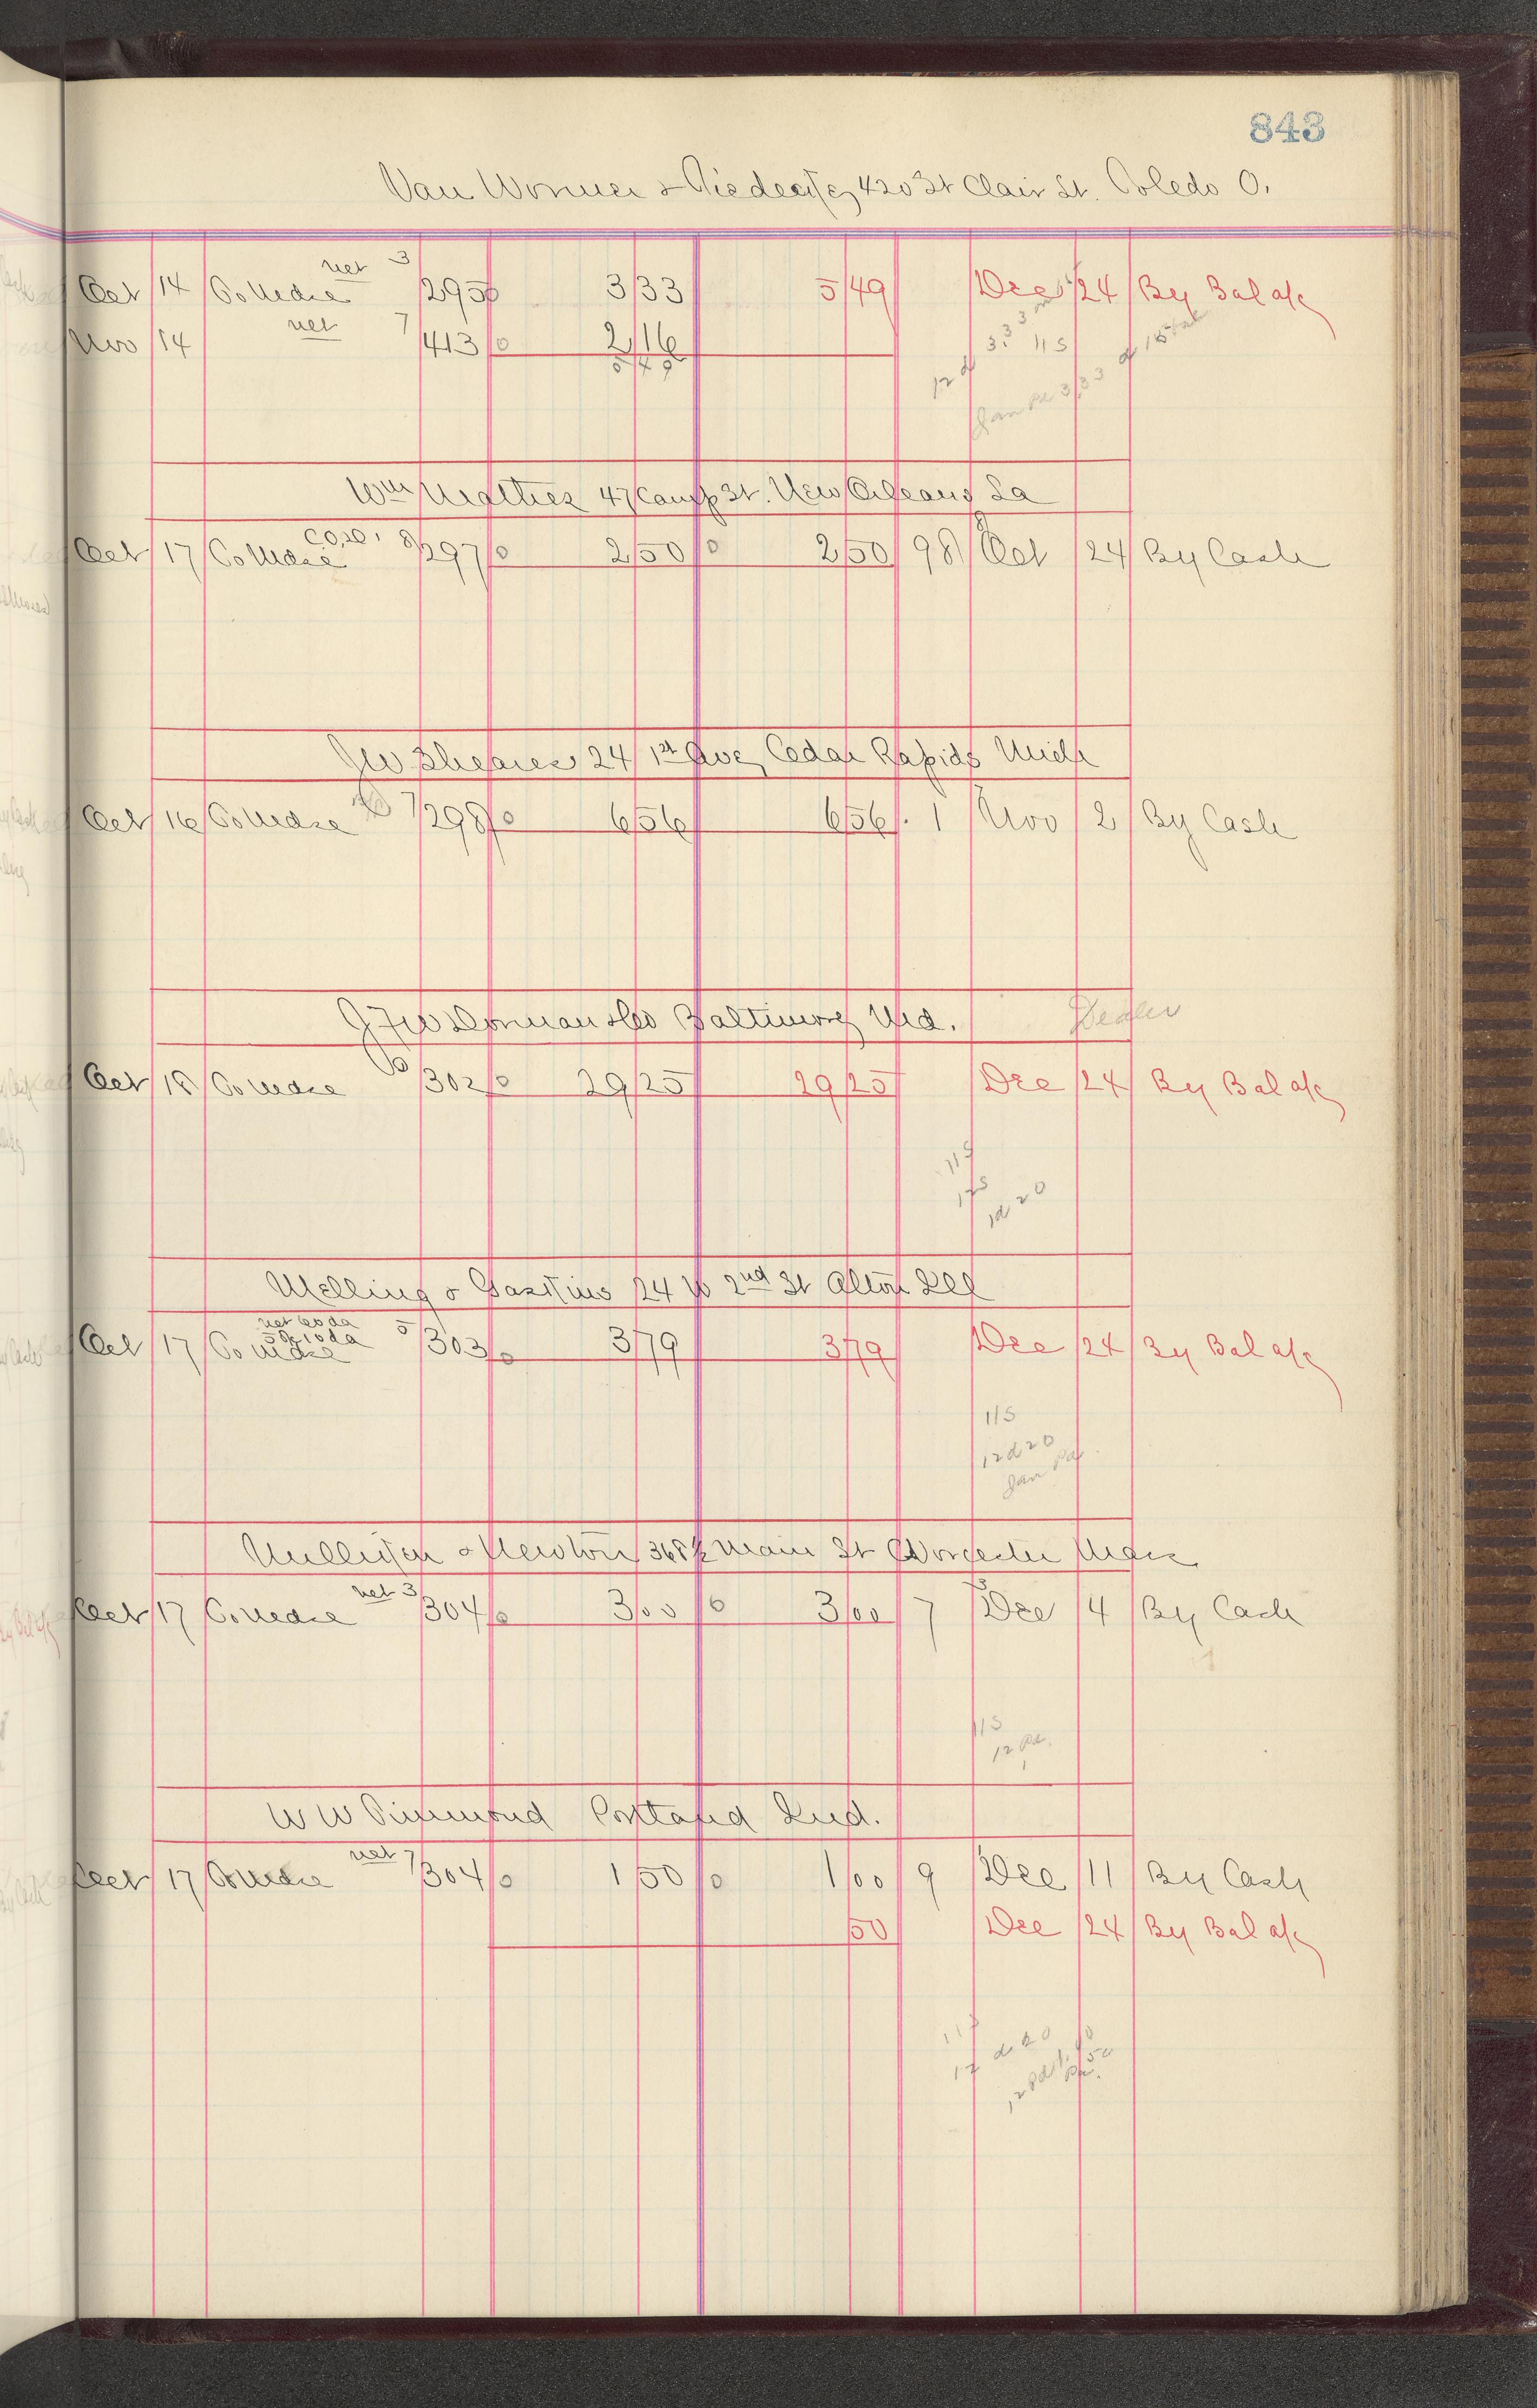 843
Van Wormer & 420 St Clair St. Toledo O.
net 3
Oct 14 To Mdse 295 0 3 33 5 49 Dec 24 By Bal a/c
Nov 14 net 7 413 0 2 16
5 49
3.33 11 5
Jan Pd 3.33
Wm 47 Camp St. New Orleans La
Oct 17 To Mdse C.O.D. 8 297 0 2 50 0 2 50 98 Oct 24 By Cash
J W Shearer 24 1st Ave, Cedar Rapids Mich
Oct 16 To Mdse 7 298 0 6 56 6 56 1 Nov 2 By Cash
J F W Dorman & Co Baltimore, Md. Dealer
Oct 18 To Mdse 10 302 0 29 25 29 25 Dec 24 By Bal a/c
11 5
1 d 20
Melling & 24 W 2nd St Alton Ill
net 60 da
5% 10 da
Oct 17 To Mdse 5 303 0 3 79 3 79 Dec 24 By Bal a/c
11 5
12 d 20
Jan Pd
& Newton 368½ Main St Worcester Mass
Oct 17 To Mdse net 3 304 0 3 00 0 3 00 7 Dec 4 By Cash
11 5
12 Pd.
W W Portland Ind.
Oct 17 To Mdse net 7 304 0 1 50 0 1 00 9 Dec 11 By Cash
50 Dec 24 By Bal a/c
12 d 20
12 Pd 1.00